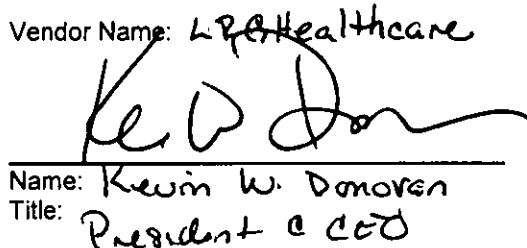 Vendor Name: LRGHealthcare
Ke W Don
Name: Kevin W. Donovan
Title: President & CEO